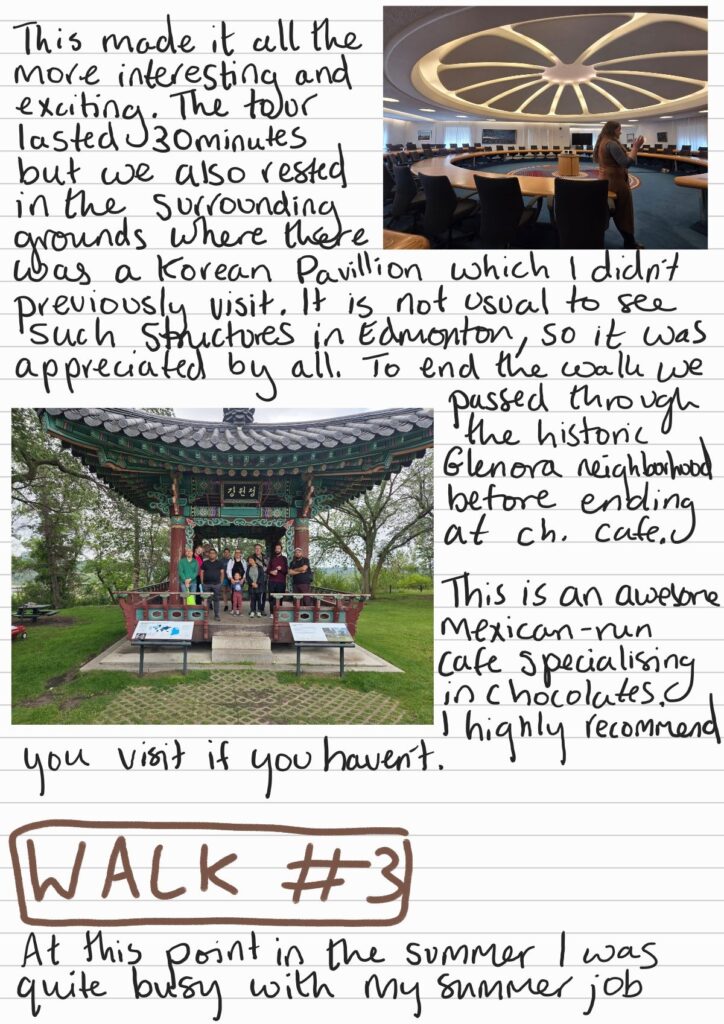 This made it all the
more interesting and
exciting. The tour
lasted 30minutes
but we also rested
in the surrounding
grounds where there
was a Korean Pavillion which I didn't
previously visit. It is not usual to see
such structures in Edmonton, so it was
appreciated by all. To end the walk we
passed through
the historic
Glenora neighborhood
before ending
at ch. cafe.
This is an awesome
Mexican-run
cafe specialising
in chocolates.
I highly recommend
you visit if you haven't.
WALK #3
At this point in the summer I was
quite busy with my summer job